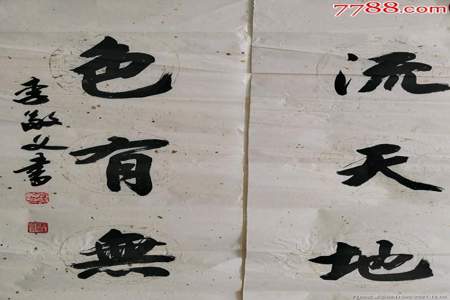 7788.com
流天地
色有無
李敬書